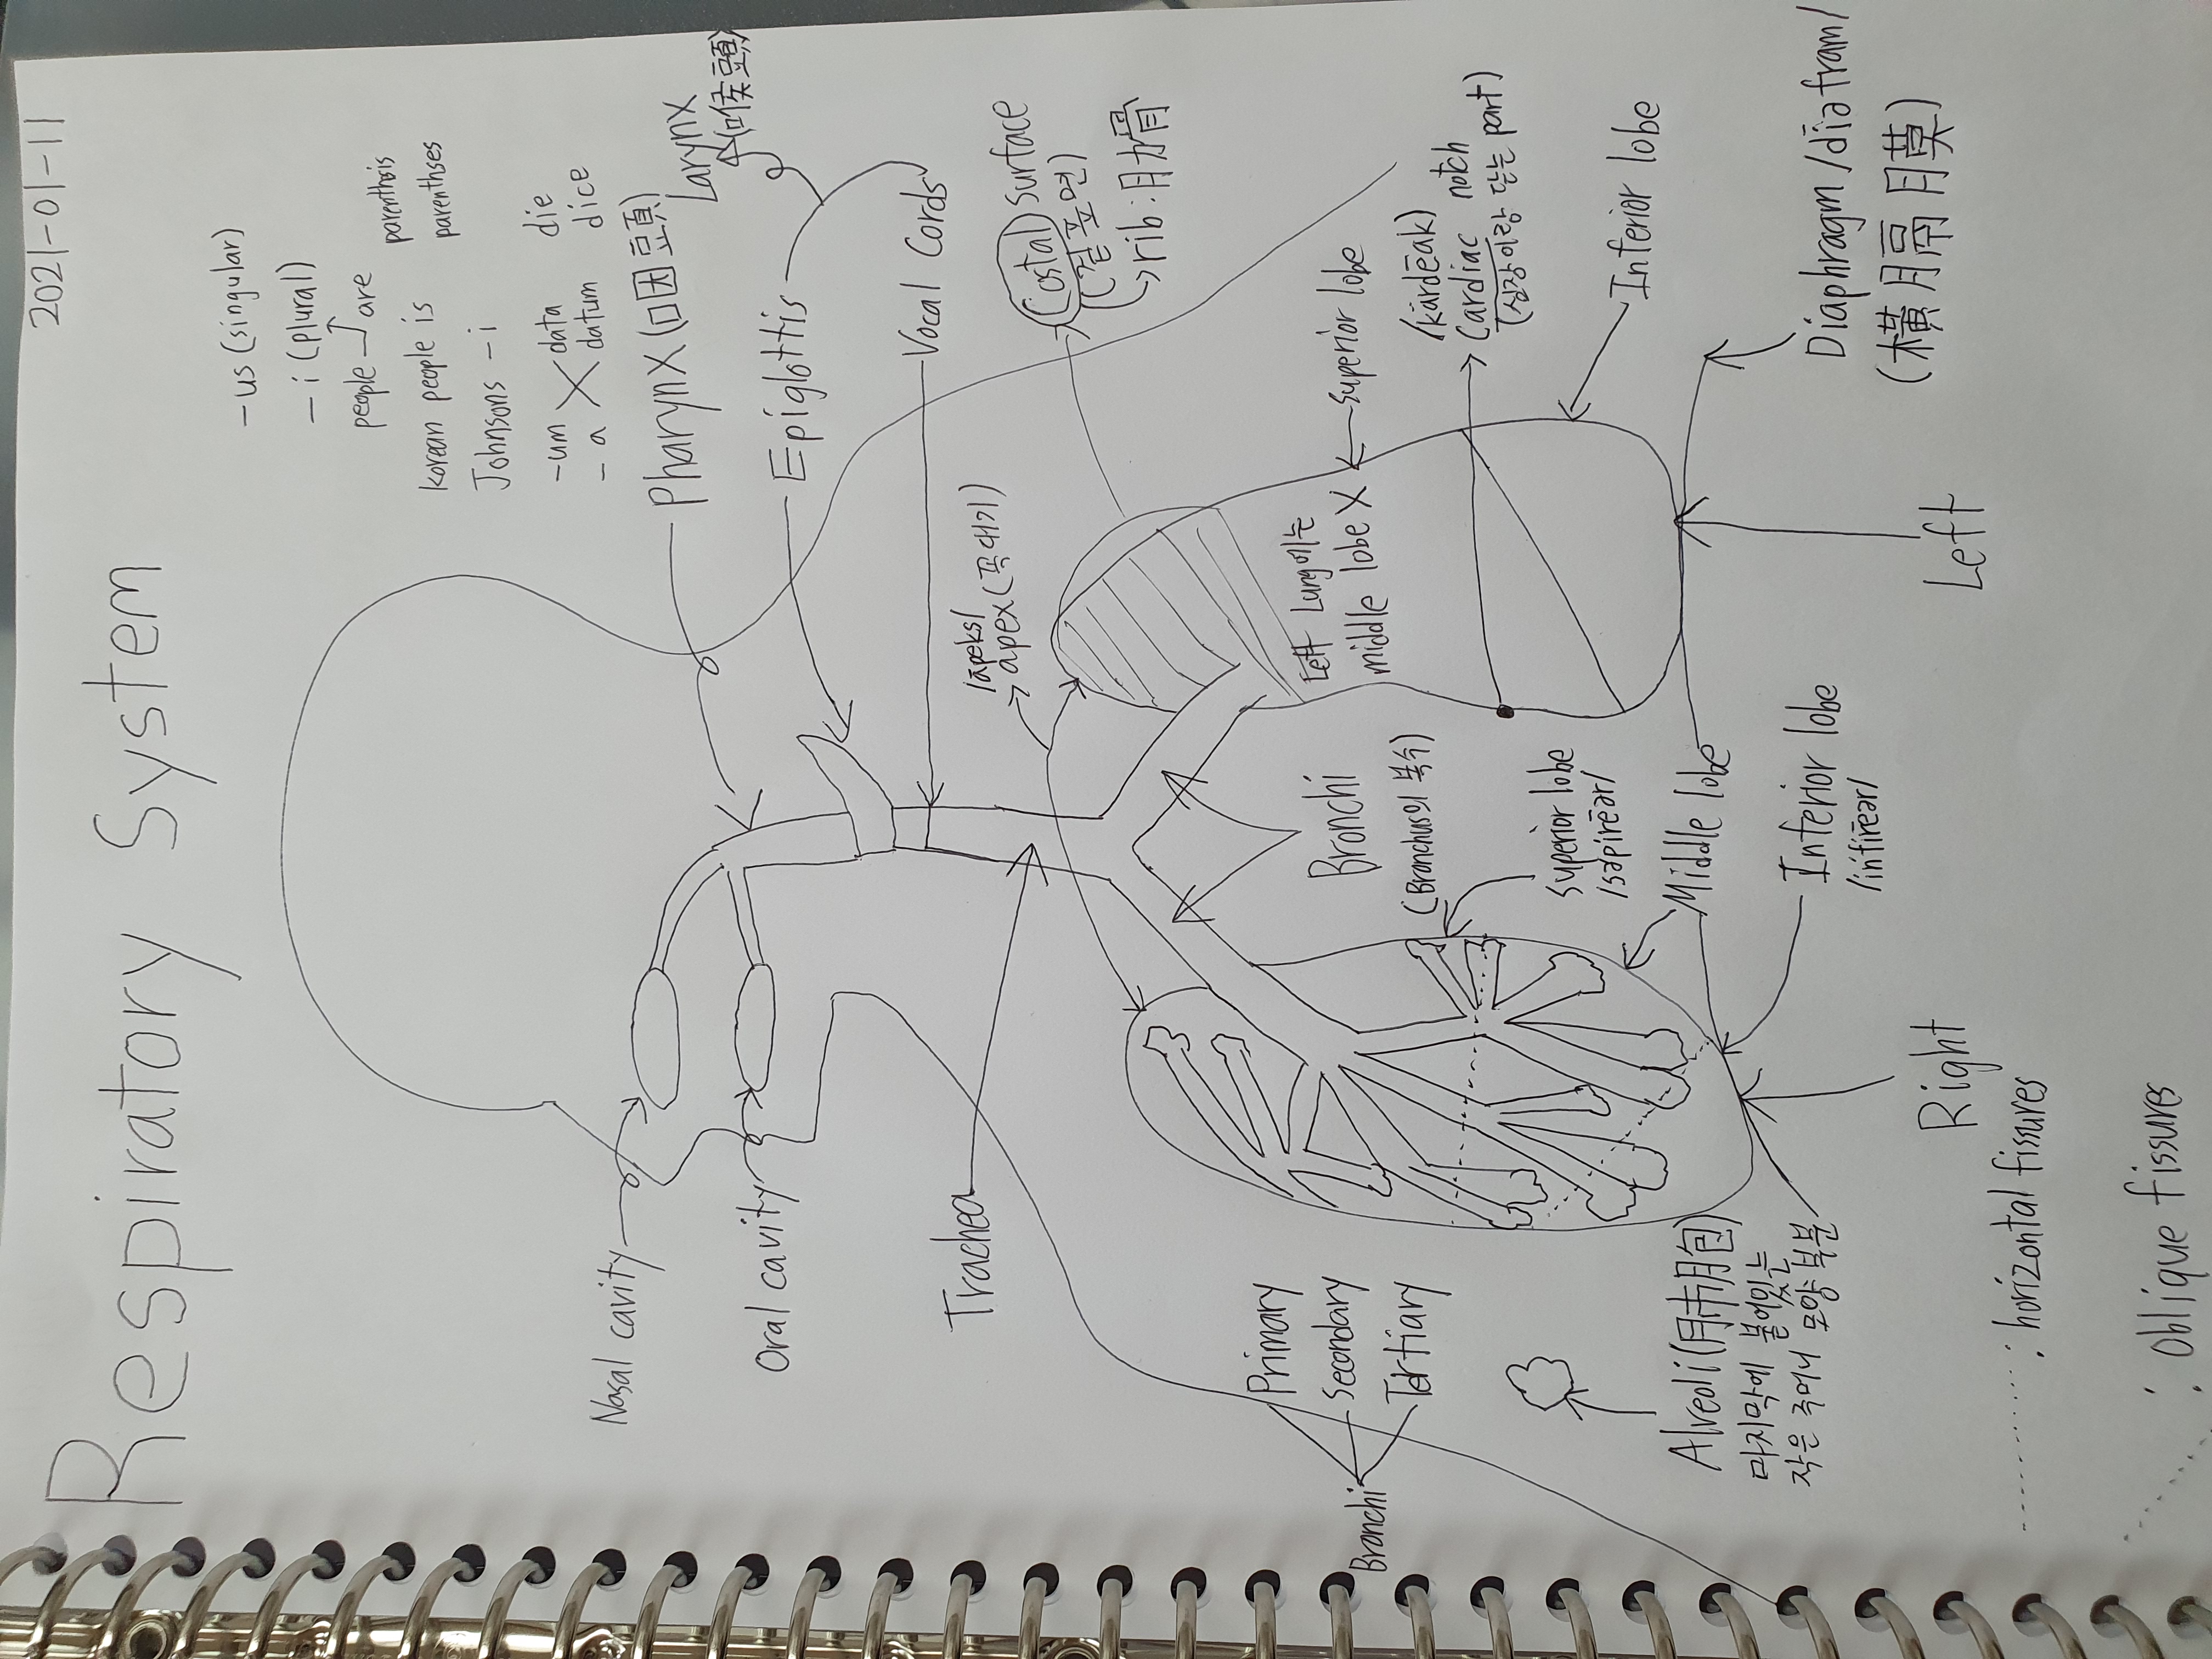 2021-01-11
Respiratory System
-us (singular)
-i (plural)
people are
korean people is
Johnsons -i
parenthsis
parenthses
-um data
-a datum
die
dice
Pharynx (咽頭)
Larynx
(喉頭)
Epiglottis
Vocal Cords
Nasal cavity
Oral cavity
Trachea
/apeks/
apex (꼭대기)
Costal surface
(갈표면)
rib: 肋骨
Left Lung에는
middle lobe X
superior lobe
/kardeak/
Cardiac notch
(심장이랑 닿는 part)
Inferior lobe
Diaphragm /diəfram/
(橫膈膜)
Left
Bronchi
(Bronchus의 복수)
superior lobe
/səpirēər/
Middle lobe
Inferior lobe
/infirēər/
Right
Bronchi
Primary
Secondary
Tertiary
Alveoli (肺胞)
마지막에 붙어있는
작은 주머니 모양 부분
: horizontal fissures
: Oblique fissures